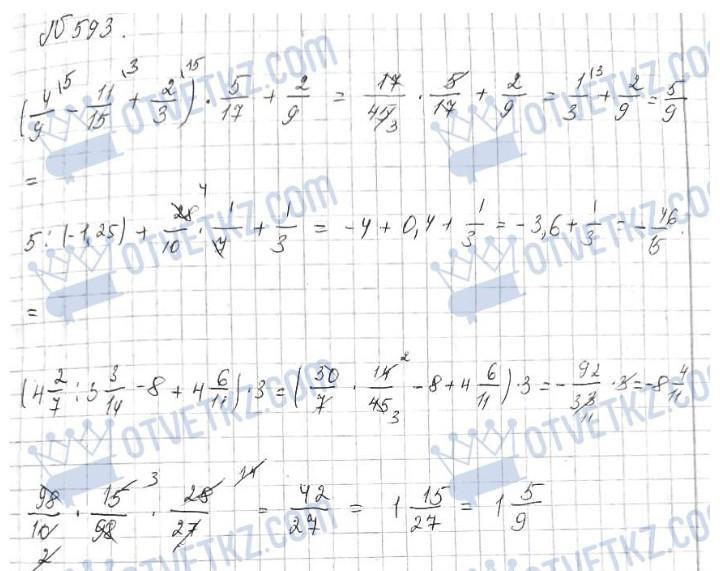 № 593.
(4/9 \5 - 11/15 \3 + 2/3 \15) · 5/17 + 2/9 = 17/45 3 · 5/17 + 2/9 = 1/3 \3 + 2/9 = 5/9
=
5 : (-1,25) + 28/10 4 · 1/7 + 1/3 = -4 + 0,4 + 1/3 = -3,6 + 1/3 = - 46/15 .
=
(4 2/7 : 3 3/14 - 8 + 4 6/11) · 3 = (30/7 · 14/45 2 3 - 8 + 4 6/11) · 3 = - 92/33 11 · 3 = -8 4/11
98/10 2 · 15/98 3 · 28/27 14 = 42/27 = 1 15/27 = 1 5/9
OTVETKZ.COM
OTVETKZ.COM
OTVETKZ.COM
OTVETKZ.COM
OTVETKZ.COM
OTVETKZ.COM
OTVETKZ.COM
OTVETKZ.COM